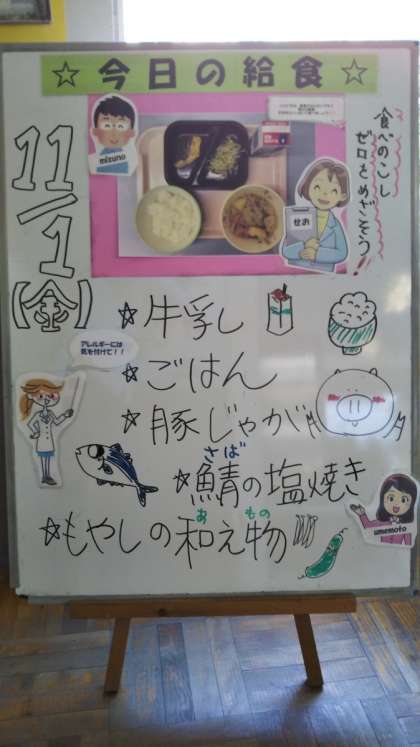 ☆今日の給食☆
11/1
(金)
mizuno
せお
食べのこし
ゼロをめざそう!
☆牛乳
☆ごはん
アレルギーには
気を付けて!!
☆豚じゃが
さば
☆鯖の塩焼き
あ もの
☆もやしの和え物
umemoto